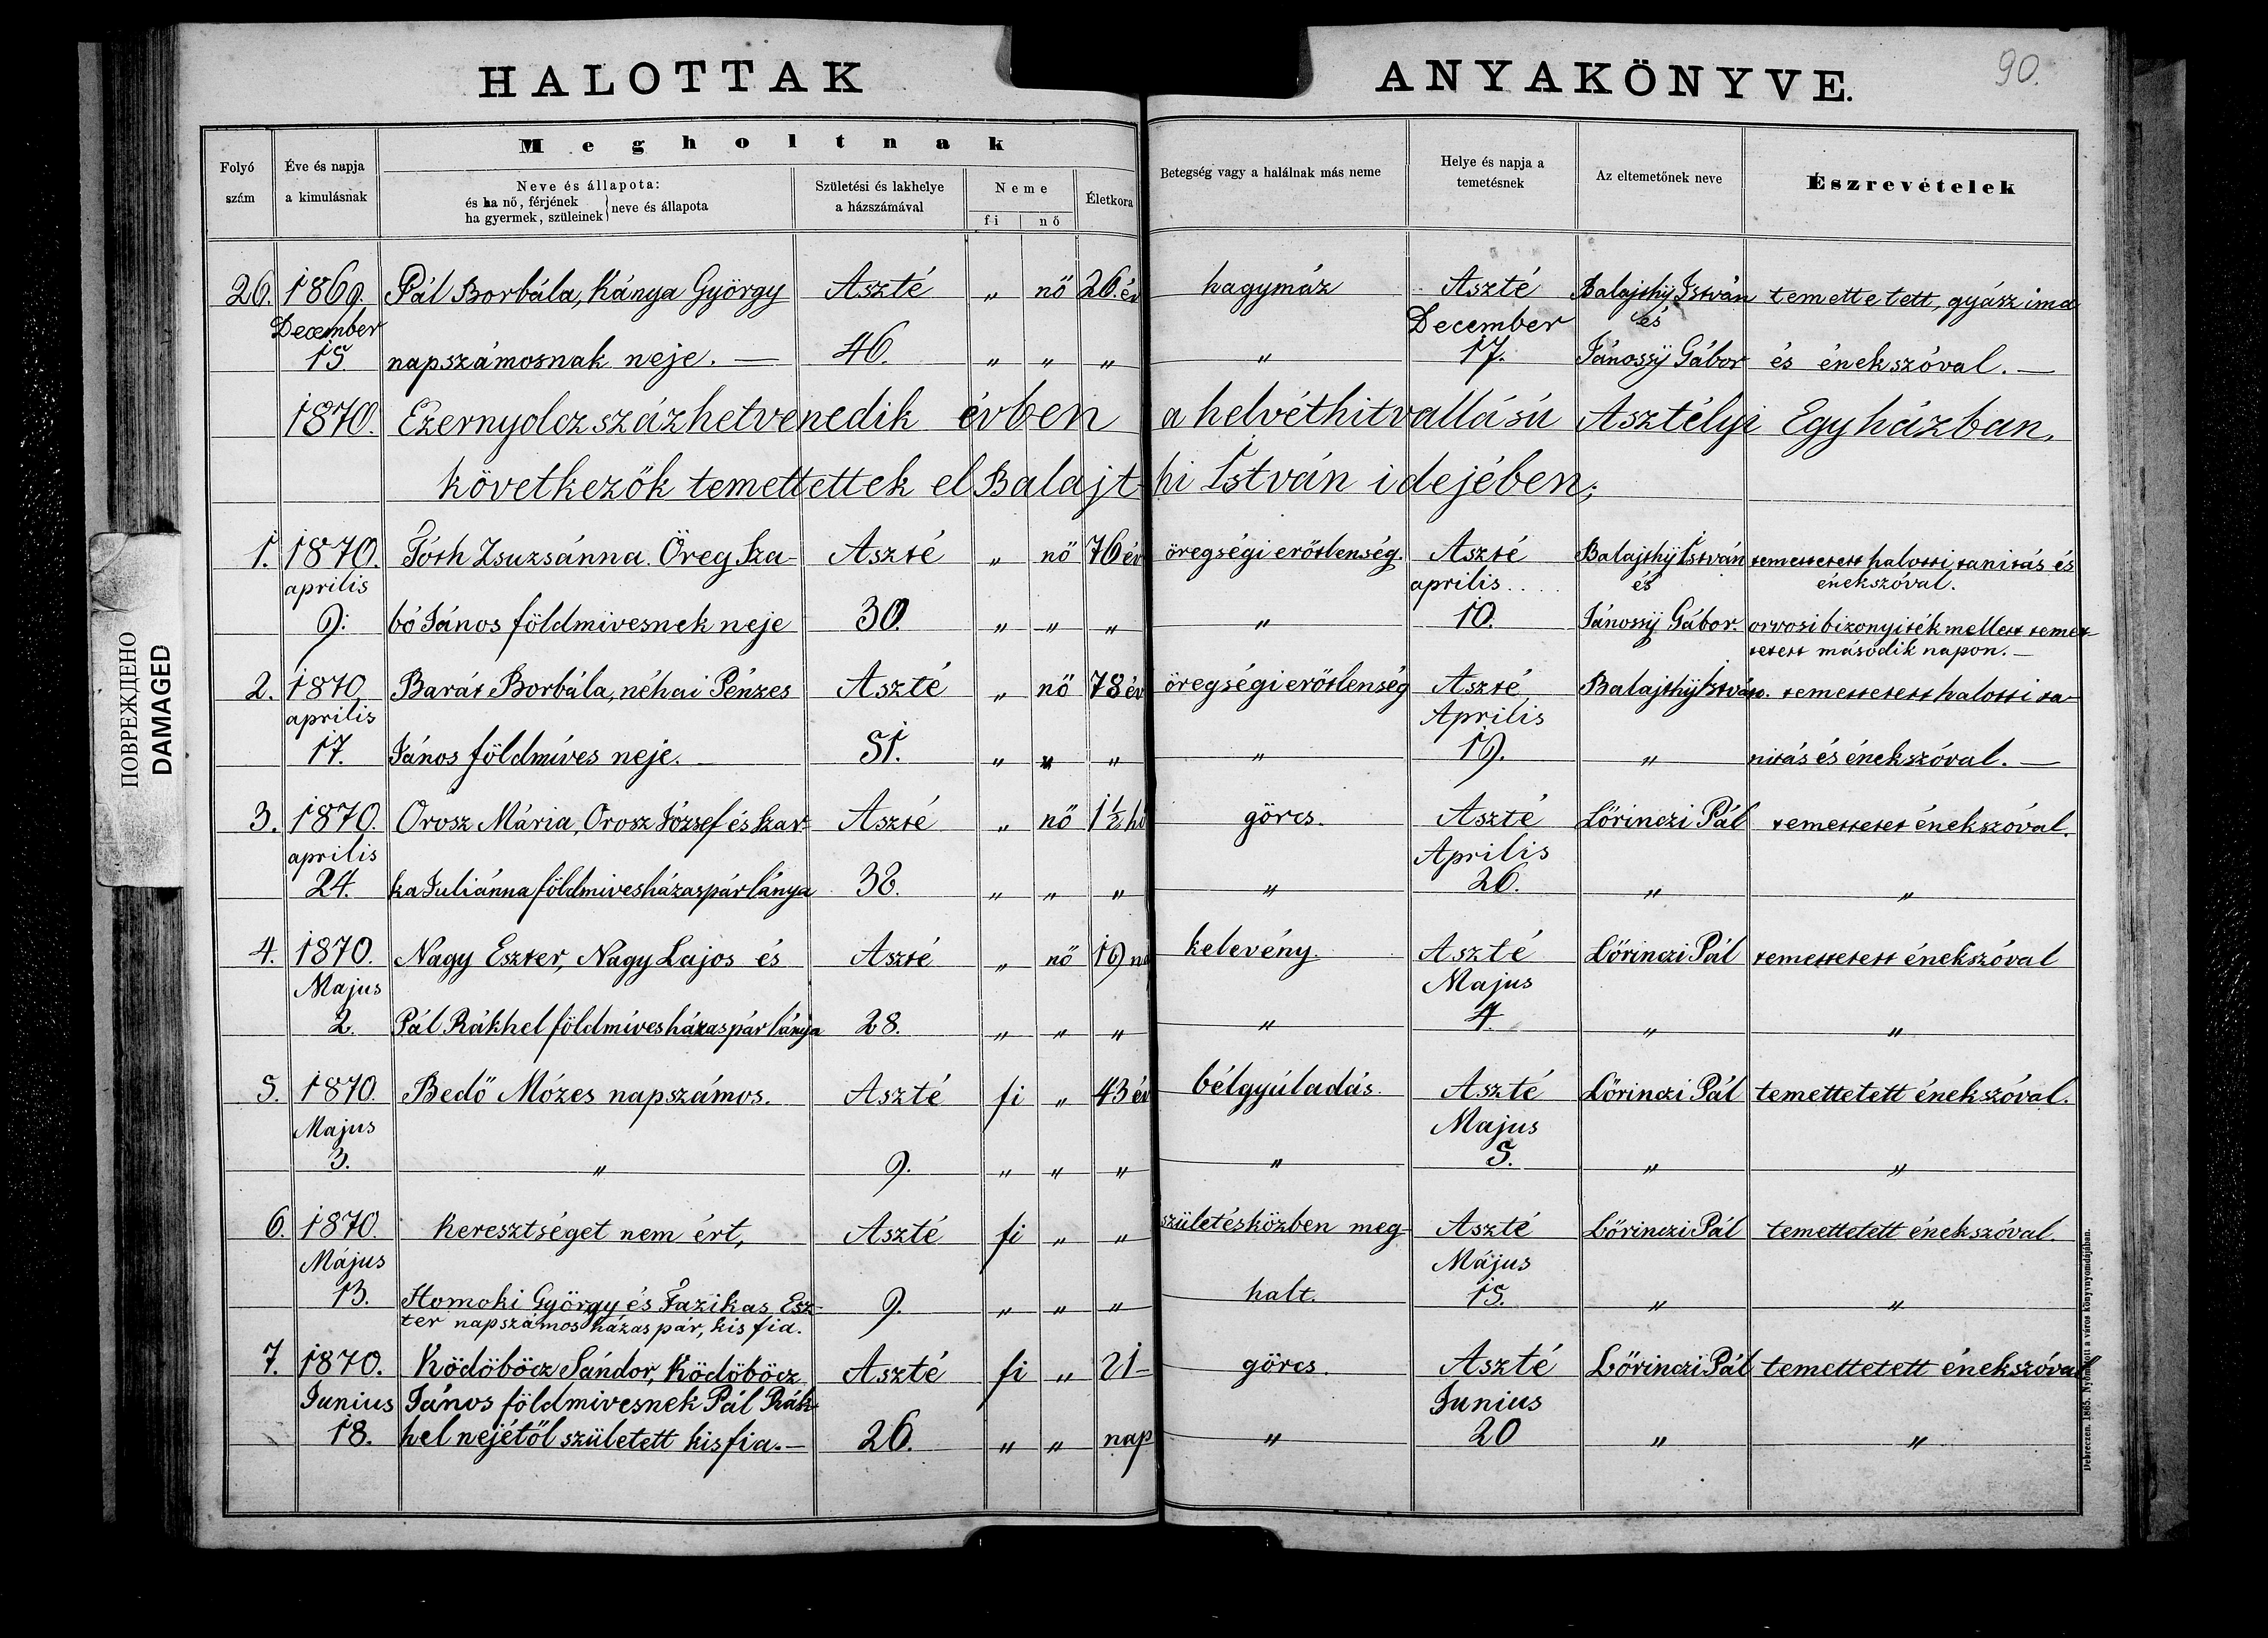 HALOTTAK ANYAKÖNYVE.
90.
Folyó szám
Éve és napja a kimulásnak
Megholtnak
Neve és állapota:
és ha nő, férjének
ha gyermek, szüleinek } neve és állapota
Születési és lakhelye a házszámával
Neme
fi nő
Életkora
Betegség vagy a halálnak más neme
Helye és napja a temetésnek
Az eltemetőnek neve
Észrevételek
26. 1869. Pál Borbála, Kánya György Aszté „ nő 26. év hagymáz Aszté Balajthÿ István temettetett, gyász ima
December December és
15 napszámosnak neje. — 46. „ „ „ „ 17. Jánossÿ Gábor és énekszóval. —
1870. Ezernyolczszázhetvenedik évben a helvéthitvallású Asztélyi Egyházban,
következők temettettek el Balajthi István idejében;
1. 1870. Tóth Zsuzsánna. Öreg Sza- Aszté „ nő 76 év öregségi erőtlenség. Aszté Balajthÿ István temettetett halotti tanitás és
aprilis aprilis.... és énekszóval.
9. bó János földmivesnek neje 30. „ „ „ „ 10. Jánossÿ Gábor. orvosi bizonyiték mellett temet-
tetett második napon. —
2. 1870 Barát Borbála, néhai Pénzes Aszté „ nő 78 év öregségi erőtlenség Aszté Balajthÿ István. temettetett halotti ta-
aprilis Aprilis
17. János földmíves neje. — 51. „ „ „ „ 19. „ nitás és énekszóval. —
3. 1870. Orosz Mária, Orosz József és Szar- Aszté „ nő 1½ hó görcs. Aszté Lőrinczi Pál temettetet énekszóval.
aprilis Aprilis
24. ka Juliánna földmivesházaspár lánya 38. „ „ „ „ 26. „ „
4. 1870. Nagy Eszter, Nagy Lajos és Aszté „ nő 19 na kelevény. Aszté Lőrinczi Pál temettetett énekszóval
Majus Majus
2. Pál Rákhel földmívesházaspár lánya 28. „ „ „ „ 4. „ „
5. 1870. Bedő Mózes napszámos. Aszté fi „ 43 év bélgyúladás. Aszté Lőrinczi Pál temettetett énekszóval.
Majus Majus
3. „ 9. „ „ „ „ 5. „ „
6. 1870. Keresztséget nem ért, Aszté fi „ „ születésközben meg- Aszté Lőrinczi Pál temettetett énekszóval.
Május Május
13. Homoki György és Fazikas Esz- 9. „ „ „ halt. 15. „ „
ter napszámos házaspár, kis fia.
7. 1870. Ködöböcz Sándor, Ködöböcz Aszté fi „ 21- görcs. Aszté Lőrinczi Pál temettetett énekszóval
Junius János földmivesnek Pál Rák- Junius
18. hel nejétől született kisfia. — 26. „ „ nap „ 20 „ „
Debreczen. 1865. Nyomatott a város könyvnyomdájában.
ПОВРЕЖДЕНО
DAMAGED